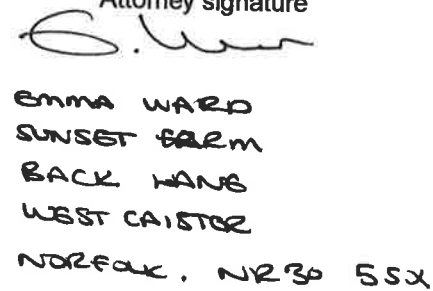 Attorney signature
EMMA WARD
SUNSET FARM
BACK LANE
WEST CAISTOR
NORFOLK. NR30 5SX